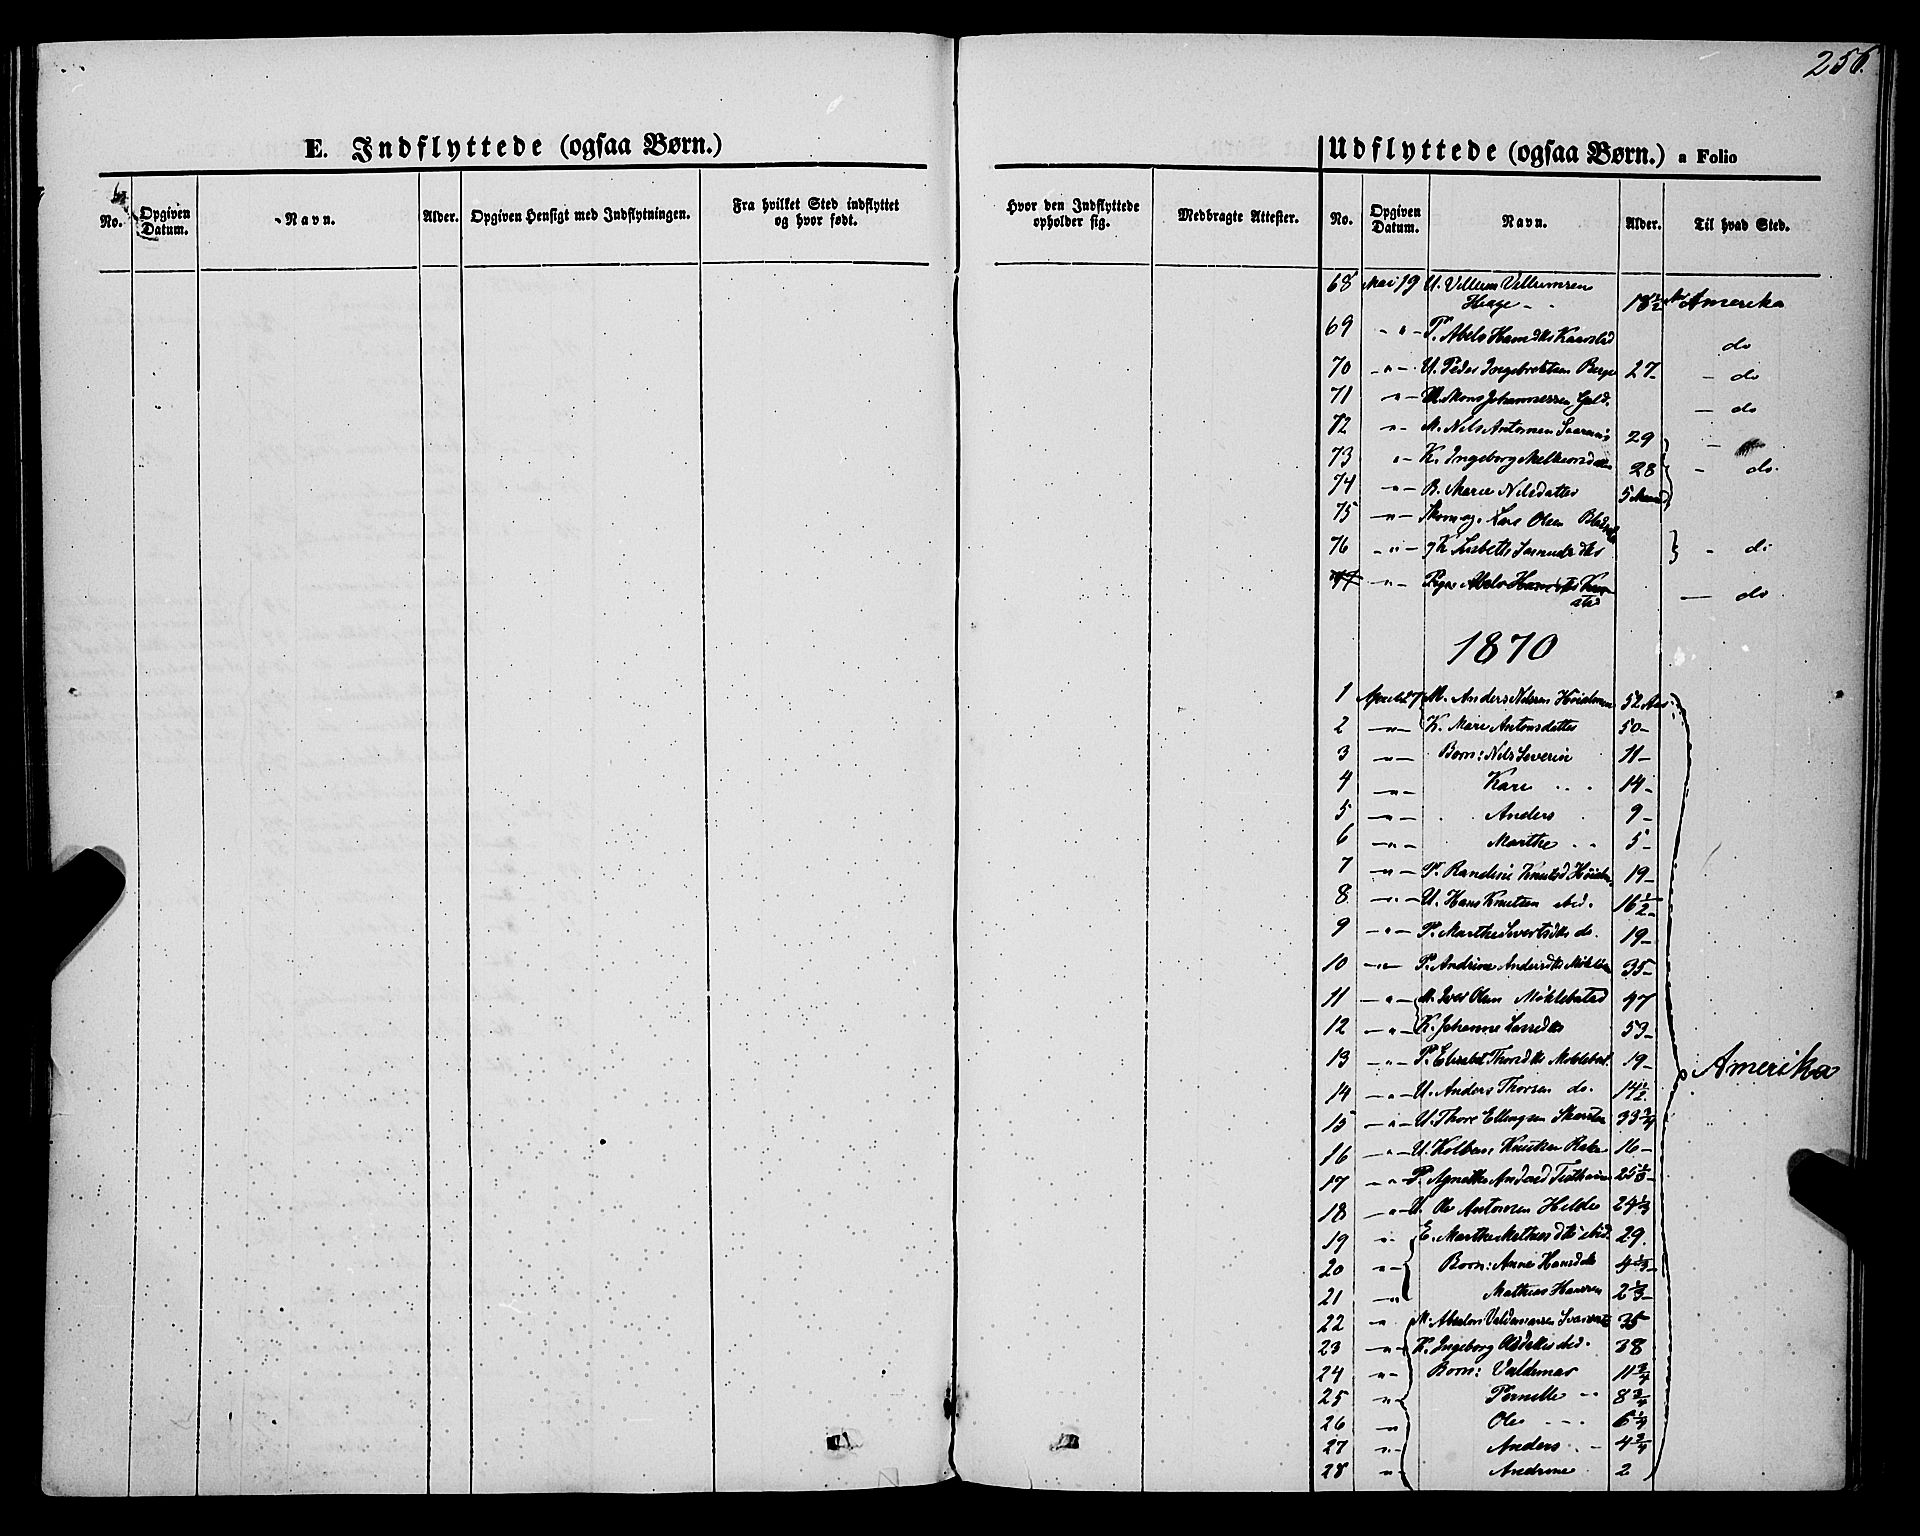 256.
E. Indflyttede (ogsaa Børn.)
Udflyttede (ogsaa Børn.) a Folio
No. Opgiven Datum. Navn. Alder. Opgiven Hensigt med Indflytningen. Fra hvilket Sted indflyttet og hvor født. Hvor den Indflyttede opholder sig. Medbragte Attester. No. Opgiven Datum. Navn. Alder. Til hvad Sted.
68 Mai 19 U. Villum Villumsen
Hage - 18½ Amerika
69 - " - P. Abelo Hansdtr Kaarstad do
70 - " - U. Peder Ingebrektsen Berge 27 - do
71 " - Mons Johannessen Gjeld. - do
72 " - M. Nils Antonsen 29 -
73 " - K. Ingeborg 28 - do.
74 - " - B. Marie Nilsdatter 5 Maaned
75 - " - Lars Olsen
76 - " - Lisbeth - do
77 - " - Pige Abelo Hansdtr - do
1870
1 April 27 M. Anders Nilssen 52 Aar
2 - " - K. Mari Antonsdatter 50 -
3 - " - Børn: Nils Severin 11 -
4 - " - Kari 14 -
5 - " - Anders 9 -
6 - " - Marthe 5 -
7 - " - P. Randine Knutsd 19 -
8 - " - U. Hans Knutsen ibid. 16½ -
9 - " - P. Marthe Sivertsdtr do. 19 -
10 - " - P. Andrine Andersdtr 35 -
11 - " - M. Iver Olsen Møklebstad 47
12 - " - K. Johanne Larsdtr 53 -
13 - " - P. Elisabet Thorsdtr 19 -
Amerika
14 - " - U. Anders Thorsen do. 14½
15 - " - U. Thore Ellingsen 33¾
16 - " - U. Kolben Knutsen 16 -
17 - " - P. Agnethe 25⅓ -
18 - " - U. Ole Antonsen Helde 24⅓
19 " E. Marthe Mathiasdtr ibid. 29.
20 " - Børn: Anne Hansdtr 4⅓ -
21 - " Mathias Hansen 2⅔ -
22 " M. Absalon Valdemarsen 35
23 - " - K. Ingeborg Olsdatter ibid. 38
24 " - Børn: Valdemar 11¾
25 " - Pernille 8¾
26 " Ole 6¼
27 " - Anders 4¾
28 " - Andrine 2